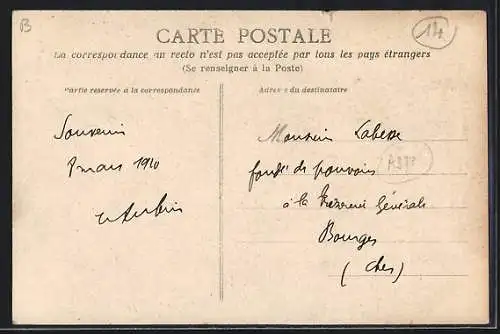 B
14
CARTE POSTALE
La correspondance au recto n'est pas acceptée par tous les pays étrangers
(Se renseigner à la Poste)
Partie réservée à la correspondance
Adresse du destinataire
Souvenir
7 mars 1910
Monsieur Labesse
fondé de pouvoirs
à la Trésorerie Générale
Bourges
(Cher)